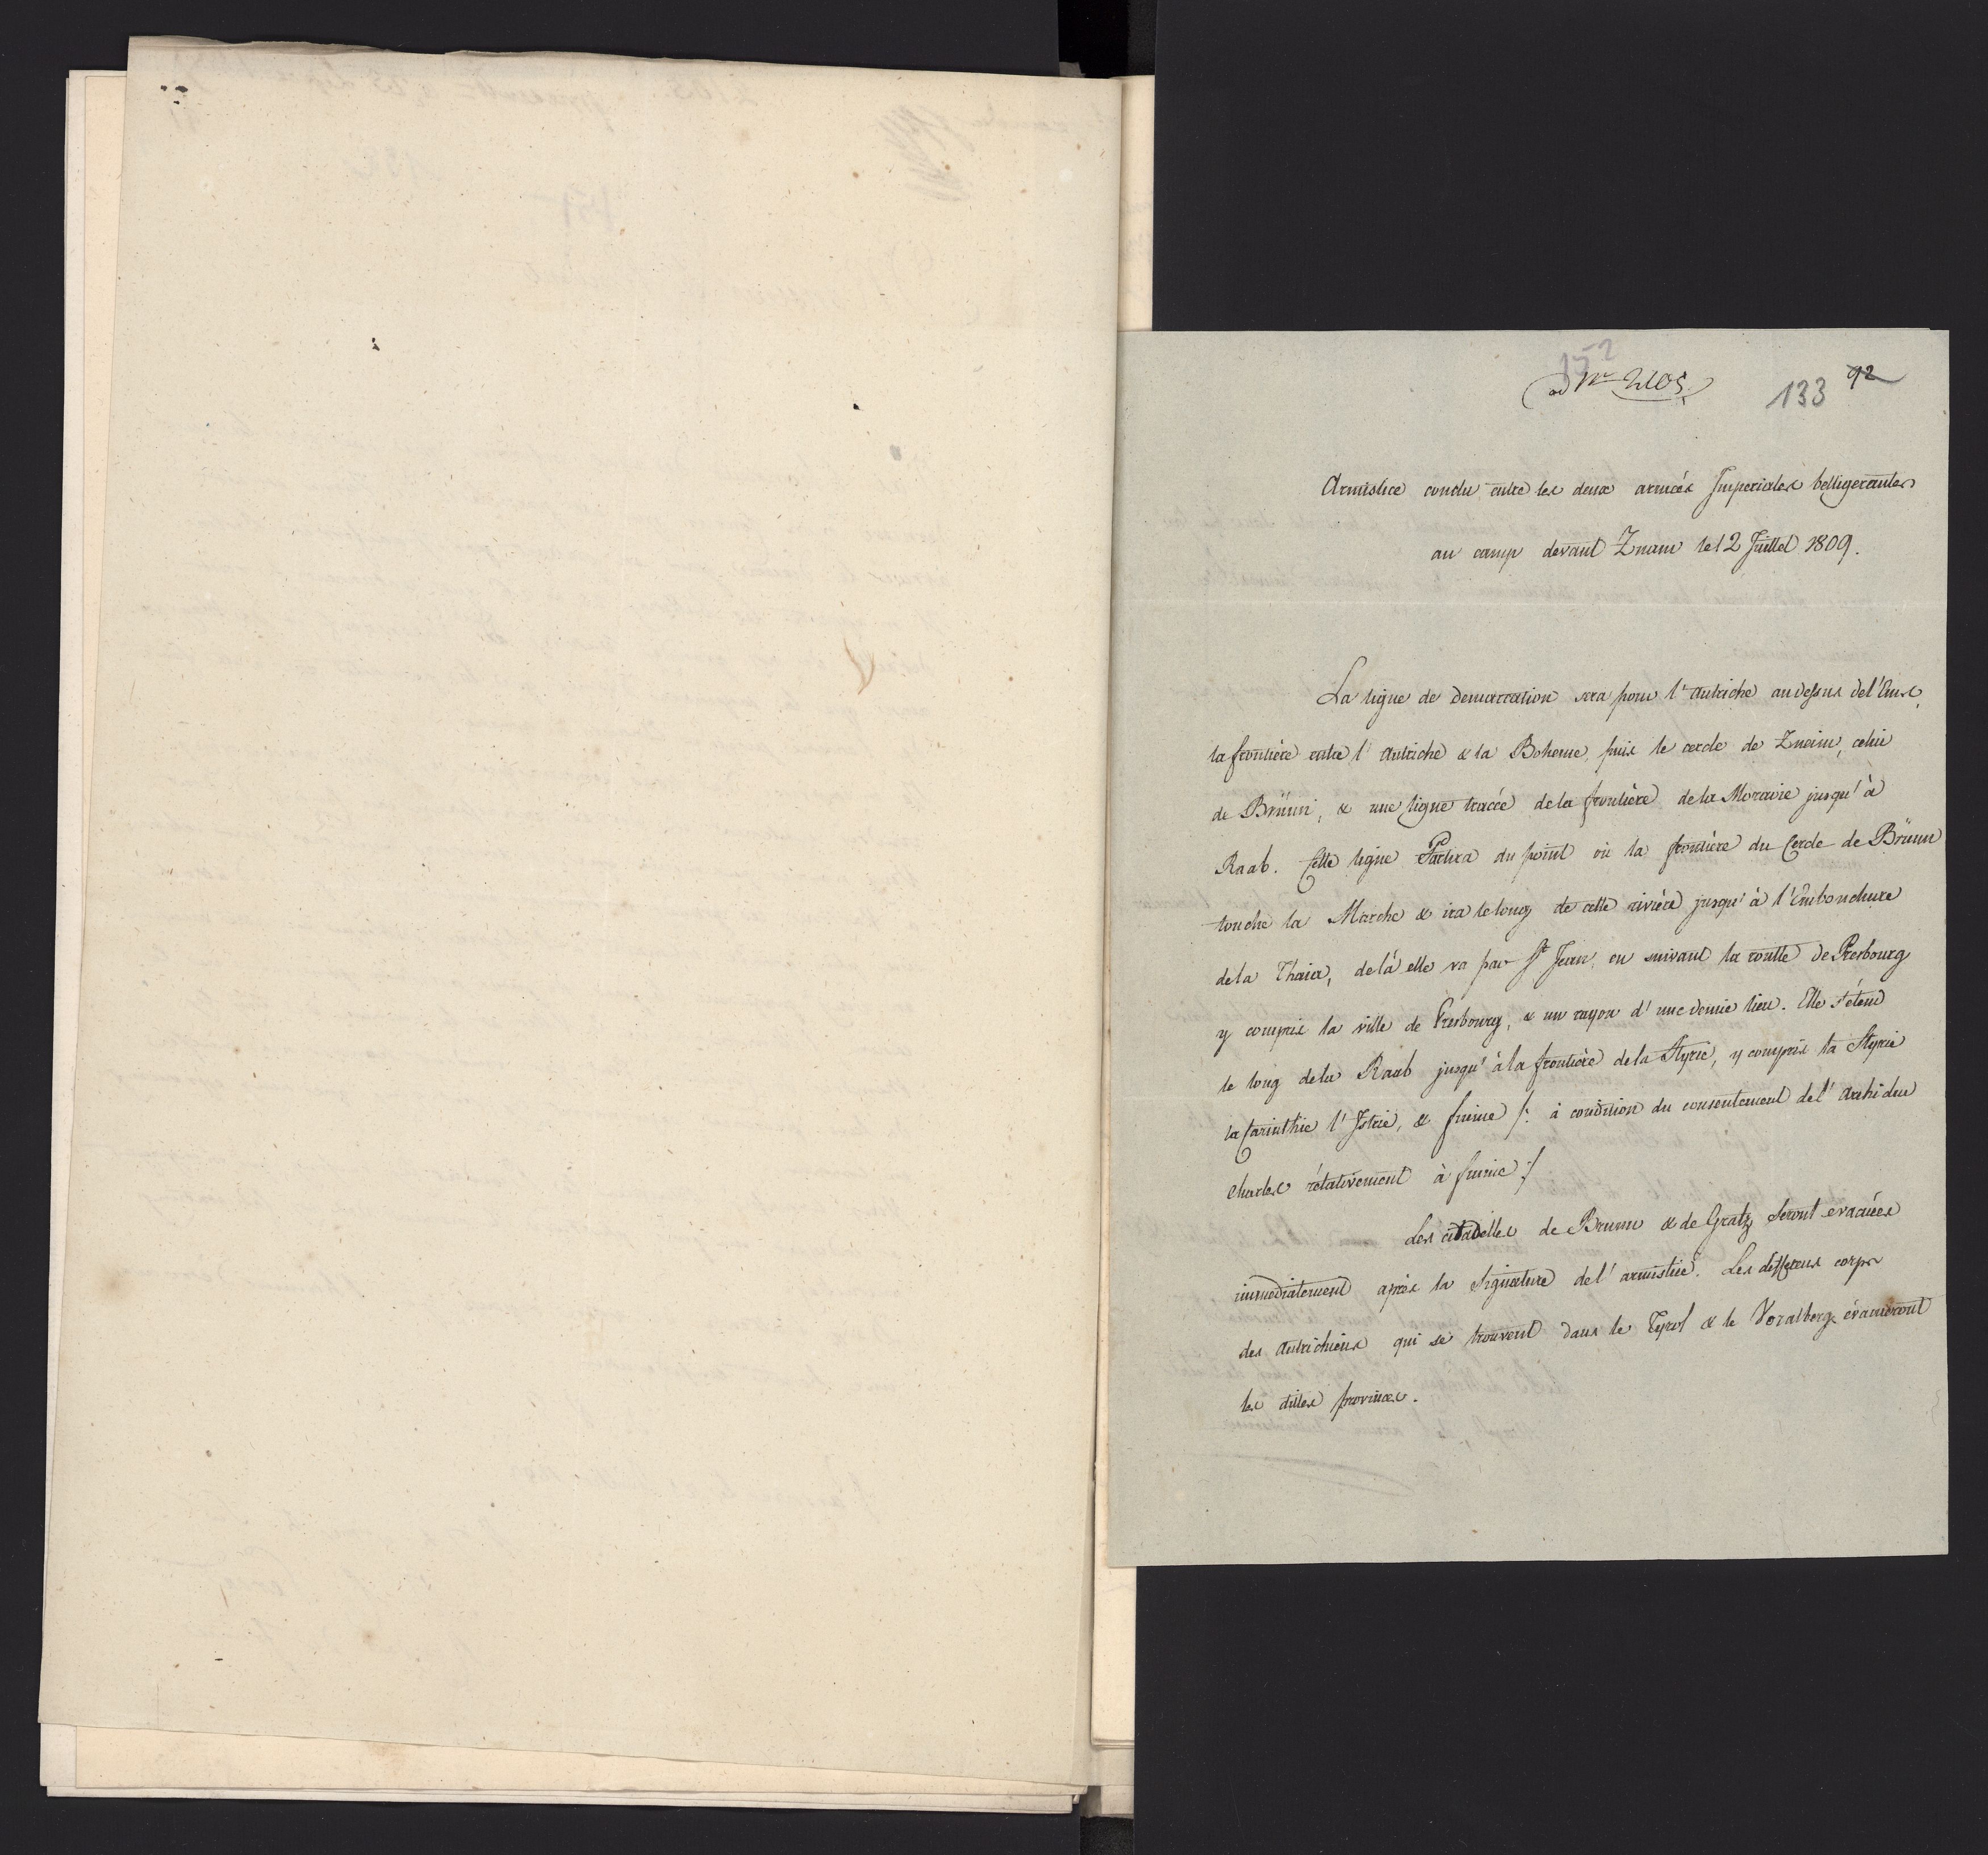 152
ad Nr 2105.
133 92
Armistice conclu entre les deux armées Imperiales belligerantes
au camp devant Znaim le 12 Juillet 1809.
La ligne de demarcation sera pour l'autriche au dessus del'Ens,
la frontière entre l'autriche & la Boheme, puis le cercle de Znaim, celui
de Brünn, & une ligne tracée dela frontière dela Moravie jusqu'à
Raab. Cette ligne Partira du point où la frontière du Cercle de Brünn
touche la Marche & ira le long de cette rivière jusqu'à l'Embouchure
dela Thaia, delà elle va par St Jean en suivant la route de Presbourg
y compris la ville de Presbourg, & un rayon d'une demie lieu. Elle s'étend
le long dela Raab jusqu'à la frontière dela Styrie, y compris la Styrie
la Carinthie l'Istrie, & fiume /: à condition du consentement del'archiduc
Charles rélativement à fiume :/
Les citadelles de Brunn & de Gratz seront evacuées
immediatement après la Signature del'armistice. Les differens corps
des autrichiens qui se trouvent dans le Tyrol & le Voralberg évacueront
les dittes provinces.